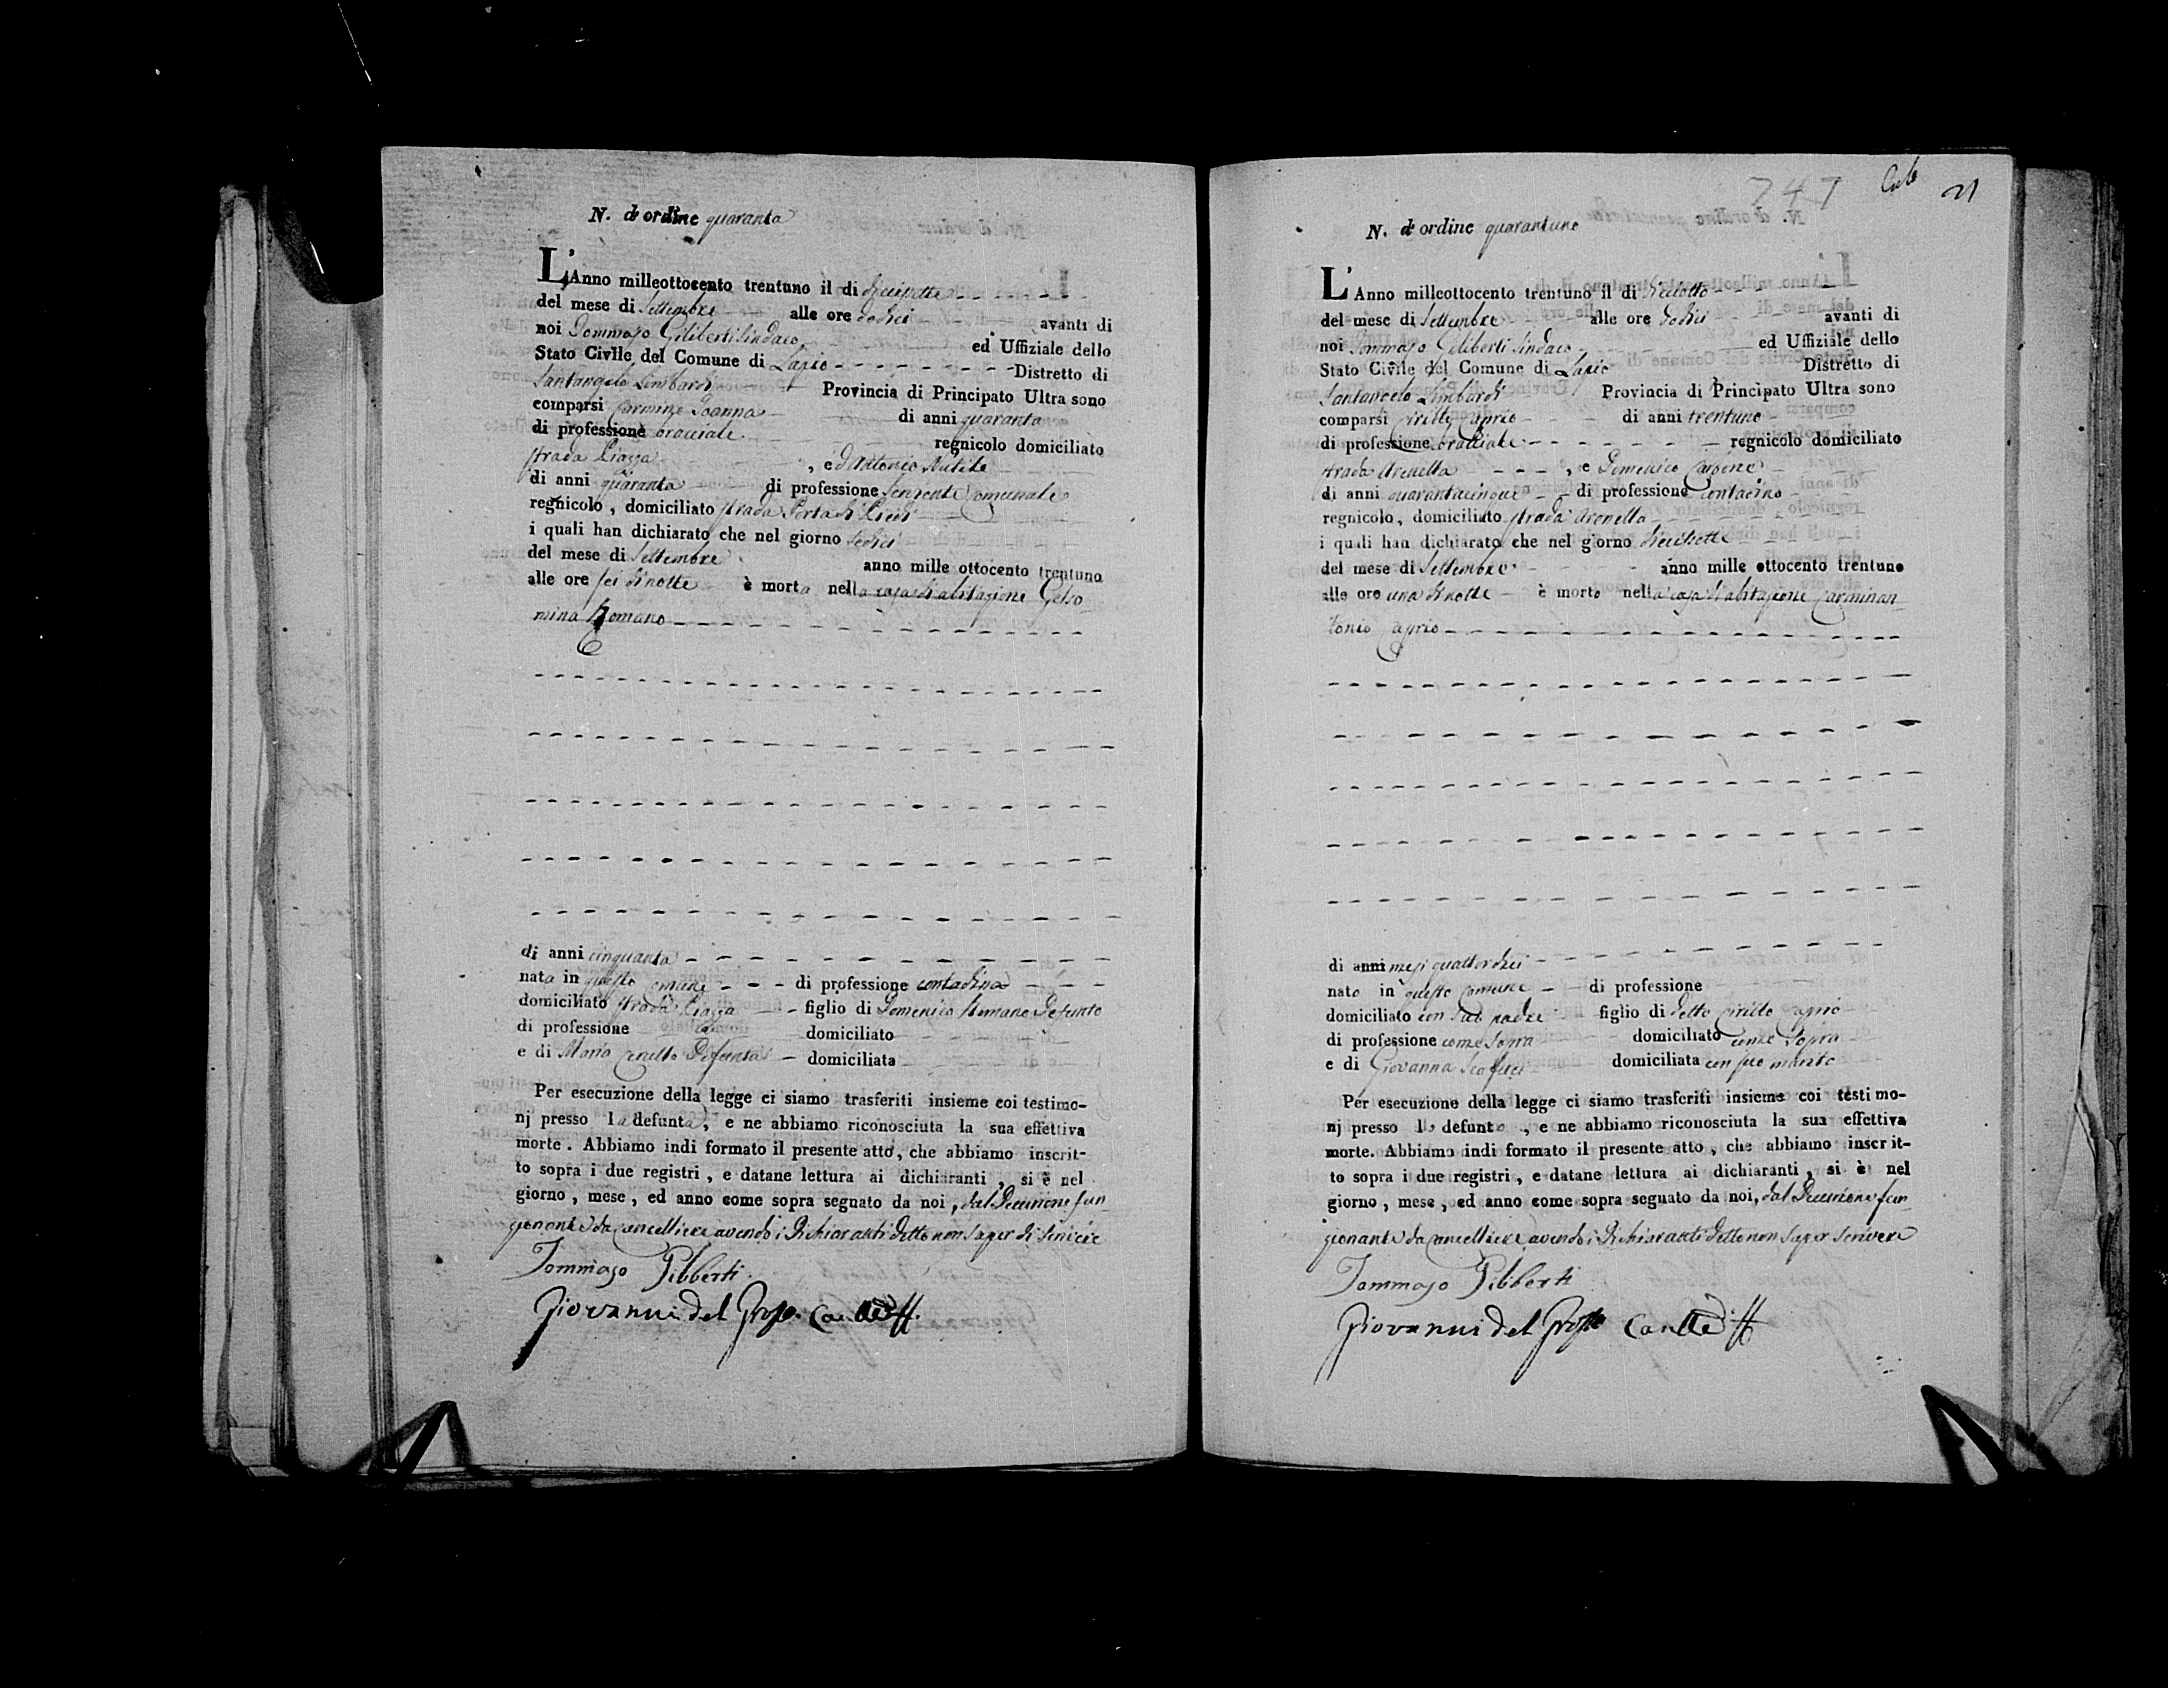 N. d'ordine quaranta
L'Anno milleottocento trentuno il di diecisette
del mese di Settembre alle ore dodici avanti di
noi Tommaso Giliberti Sindaco ed Uffiziale dello
Stato Civile del Comune di Lapio Distretto di
Santangelo Limbardi Provincia di Principato Ultra sono
comparsi Carmine Ioanna di anni quaranta
di professione bracciale regnicolo domiciliato
strada Piazza , e d'Antonio
di anni quaranta di professione Serviente Comunale
regnicolo , domiciliato strada Porta di Piedi
i quali han dichiarato che nel giorno sedici
del mese di Settembre anno mille ottocento trentuno
alle ore sei di notte è morta nella casa di abitazione Gelso
mina Romano
di anni cinquanta
nata in questo Comune di professione contadina
domiciliato strada Piazza figlio di Domenico Romano Defunto
di professione domiciliato
e di Maria Defunta domiciliata
Per esecuzione della legge ci siamo trasferiti insieme coi testimo-
nj presso la defunta, e ne abbiamo riconosciuta la sua effettiva
morte. Abbiamo indi formato il presente atto, che abbiamo inscrit-
to sopra i due registri , e datane lettura ai dichiaranti , si è nel
giorno , mese , ed anno come sopra segnato da noi , dal Decurione fun
zionante da Cancelliere avendo i Dichiaranti detto non saper di scrivere
Tommaso Gilberti
Giovanni del Grosso
747
21
N. d'ordine quarantuno
L'Anno milleottocento trentuno il di dieciotto
del mese di Settembre alle ore dodici avanti di
noi Tommaso Giliberti Sindaco ed Uffiziale dello
Stato Civile del Comune di Lapio Distretto di
Santangelo Limbardi Provincia di Principato Ultra sono
comparsi Cirillo Caprio di anni trentuno
di professione bracciale regnicolo domiciliato
strada Arenella , e Domenico Carbone
di anni quarantacinque di professione contadino
regnicolo, domiciliato strada Arenella
i quali han dichiarato che nel giorno diecisette
del mese di Settembre anno mille ottocento trentuno
alle ore una di notte è morto nella casa d'abitazione Carminan
tonio Caprio
di anni mesi quattordici
nato in questo Comune di professione
domiciliato con suo padre figlio di detto Cirillo Caprio
di professione come sopra domiciliato come sopra
e di Giovanna Scofuci domiciliata con suo marito
Per esecuzione della legge ci siamo trasferiti insieme coi testimo-
nj presso lo defunto , e ne abbiamo riconosciuta la sua effettiva
morte. Abbiamo indi formato il presente atto , che abbiamo inscrit-
to sopra i due registri , e datane lettura ai dichiaranti , si è nel
giorno , mese , ed anno come sopra segnato da noi, dal Decurione fun
zionante da Cancelliere avendo i Dichiaranti detto non saper scrivere
Tommaso Gilberti
Giovanni del Grosso